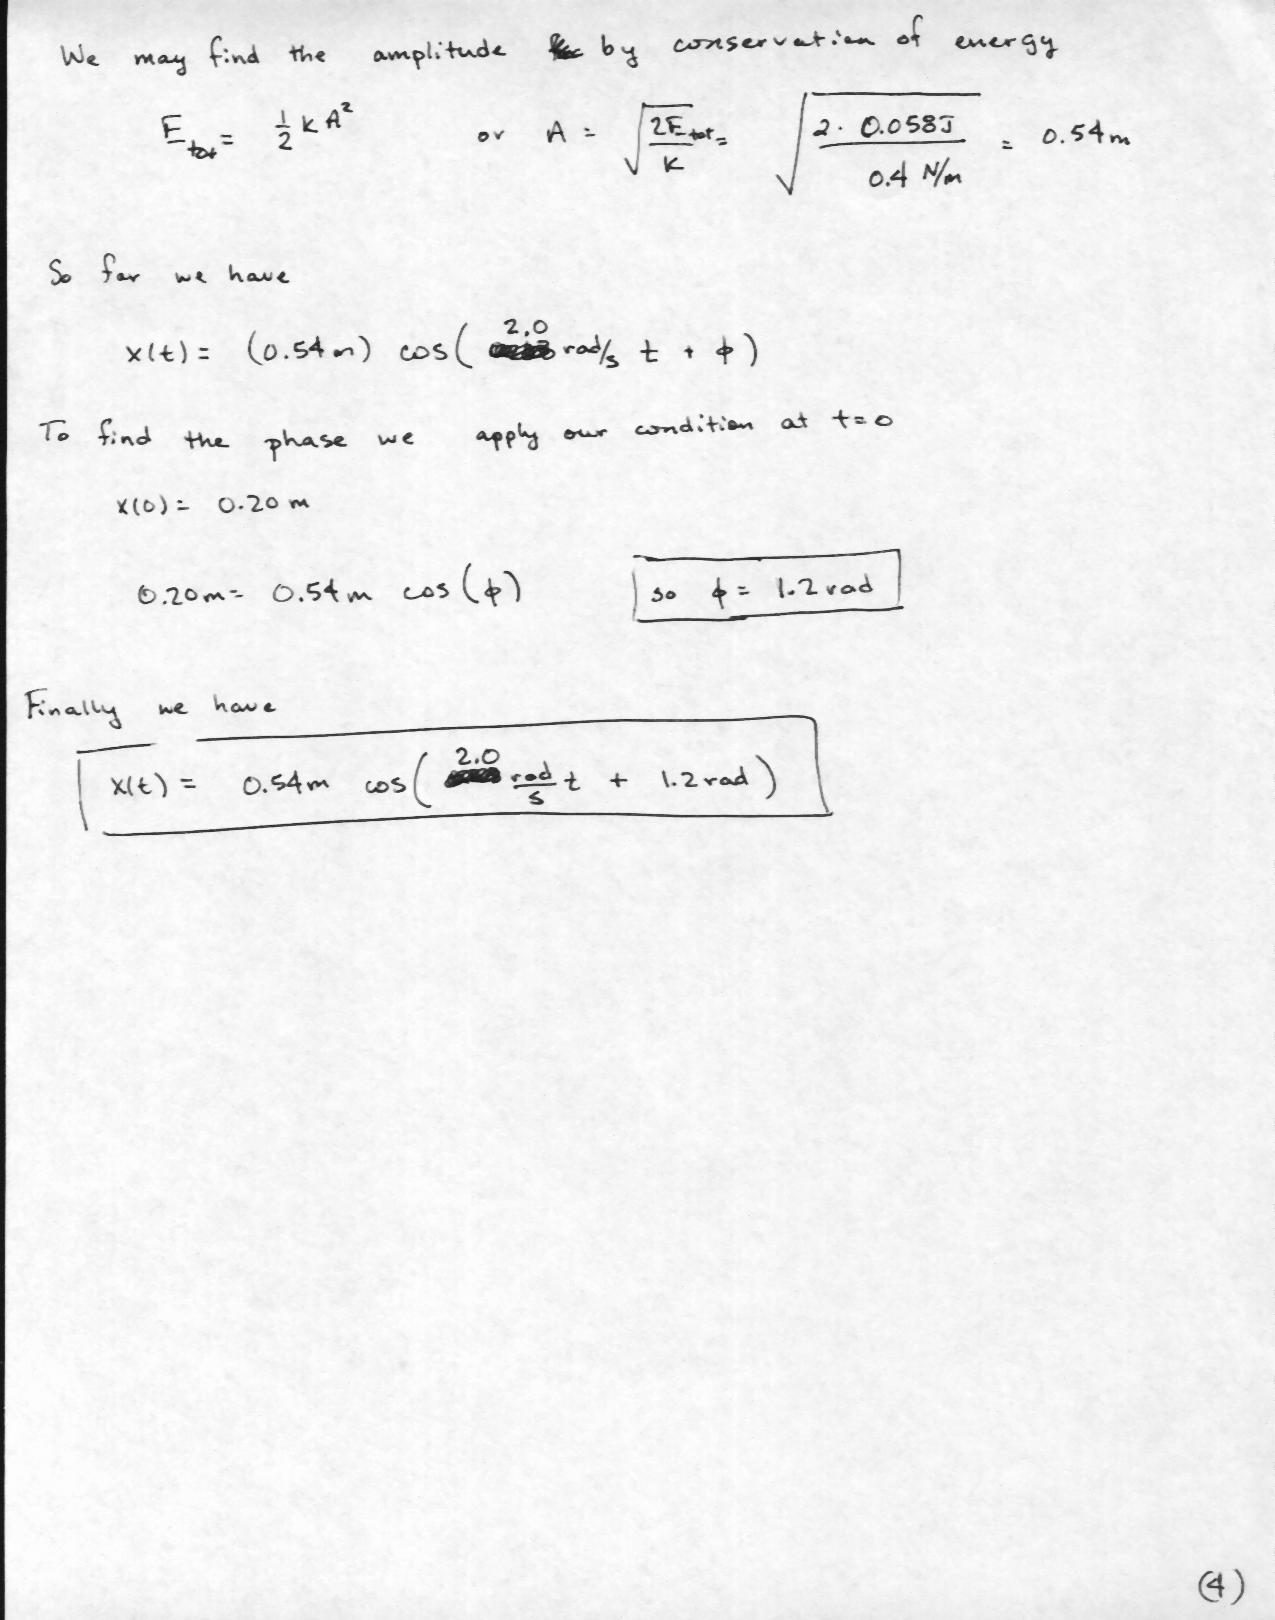 We may find the amplitude by conservation of energy
E_tot = 1/2 k A² or A = √(2E_tot/k) = √(2 · 0.058J / 0.4 N/m) = 0.54m
So far we have
x(t) = (0.54m) cos( 2.0 rad/s t + ϕ)
To find the phase we apply our condition at t=0
x(0) = 0.20 m
0.20m = 0.54m cos(ϕ) so ϕ = 1.2 rad
Finally we have
x(t) = 0.54m cos( 2.0 rad/s t + 1.2 rad)
(4)